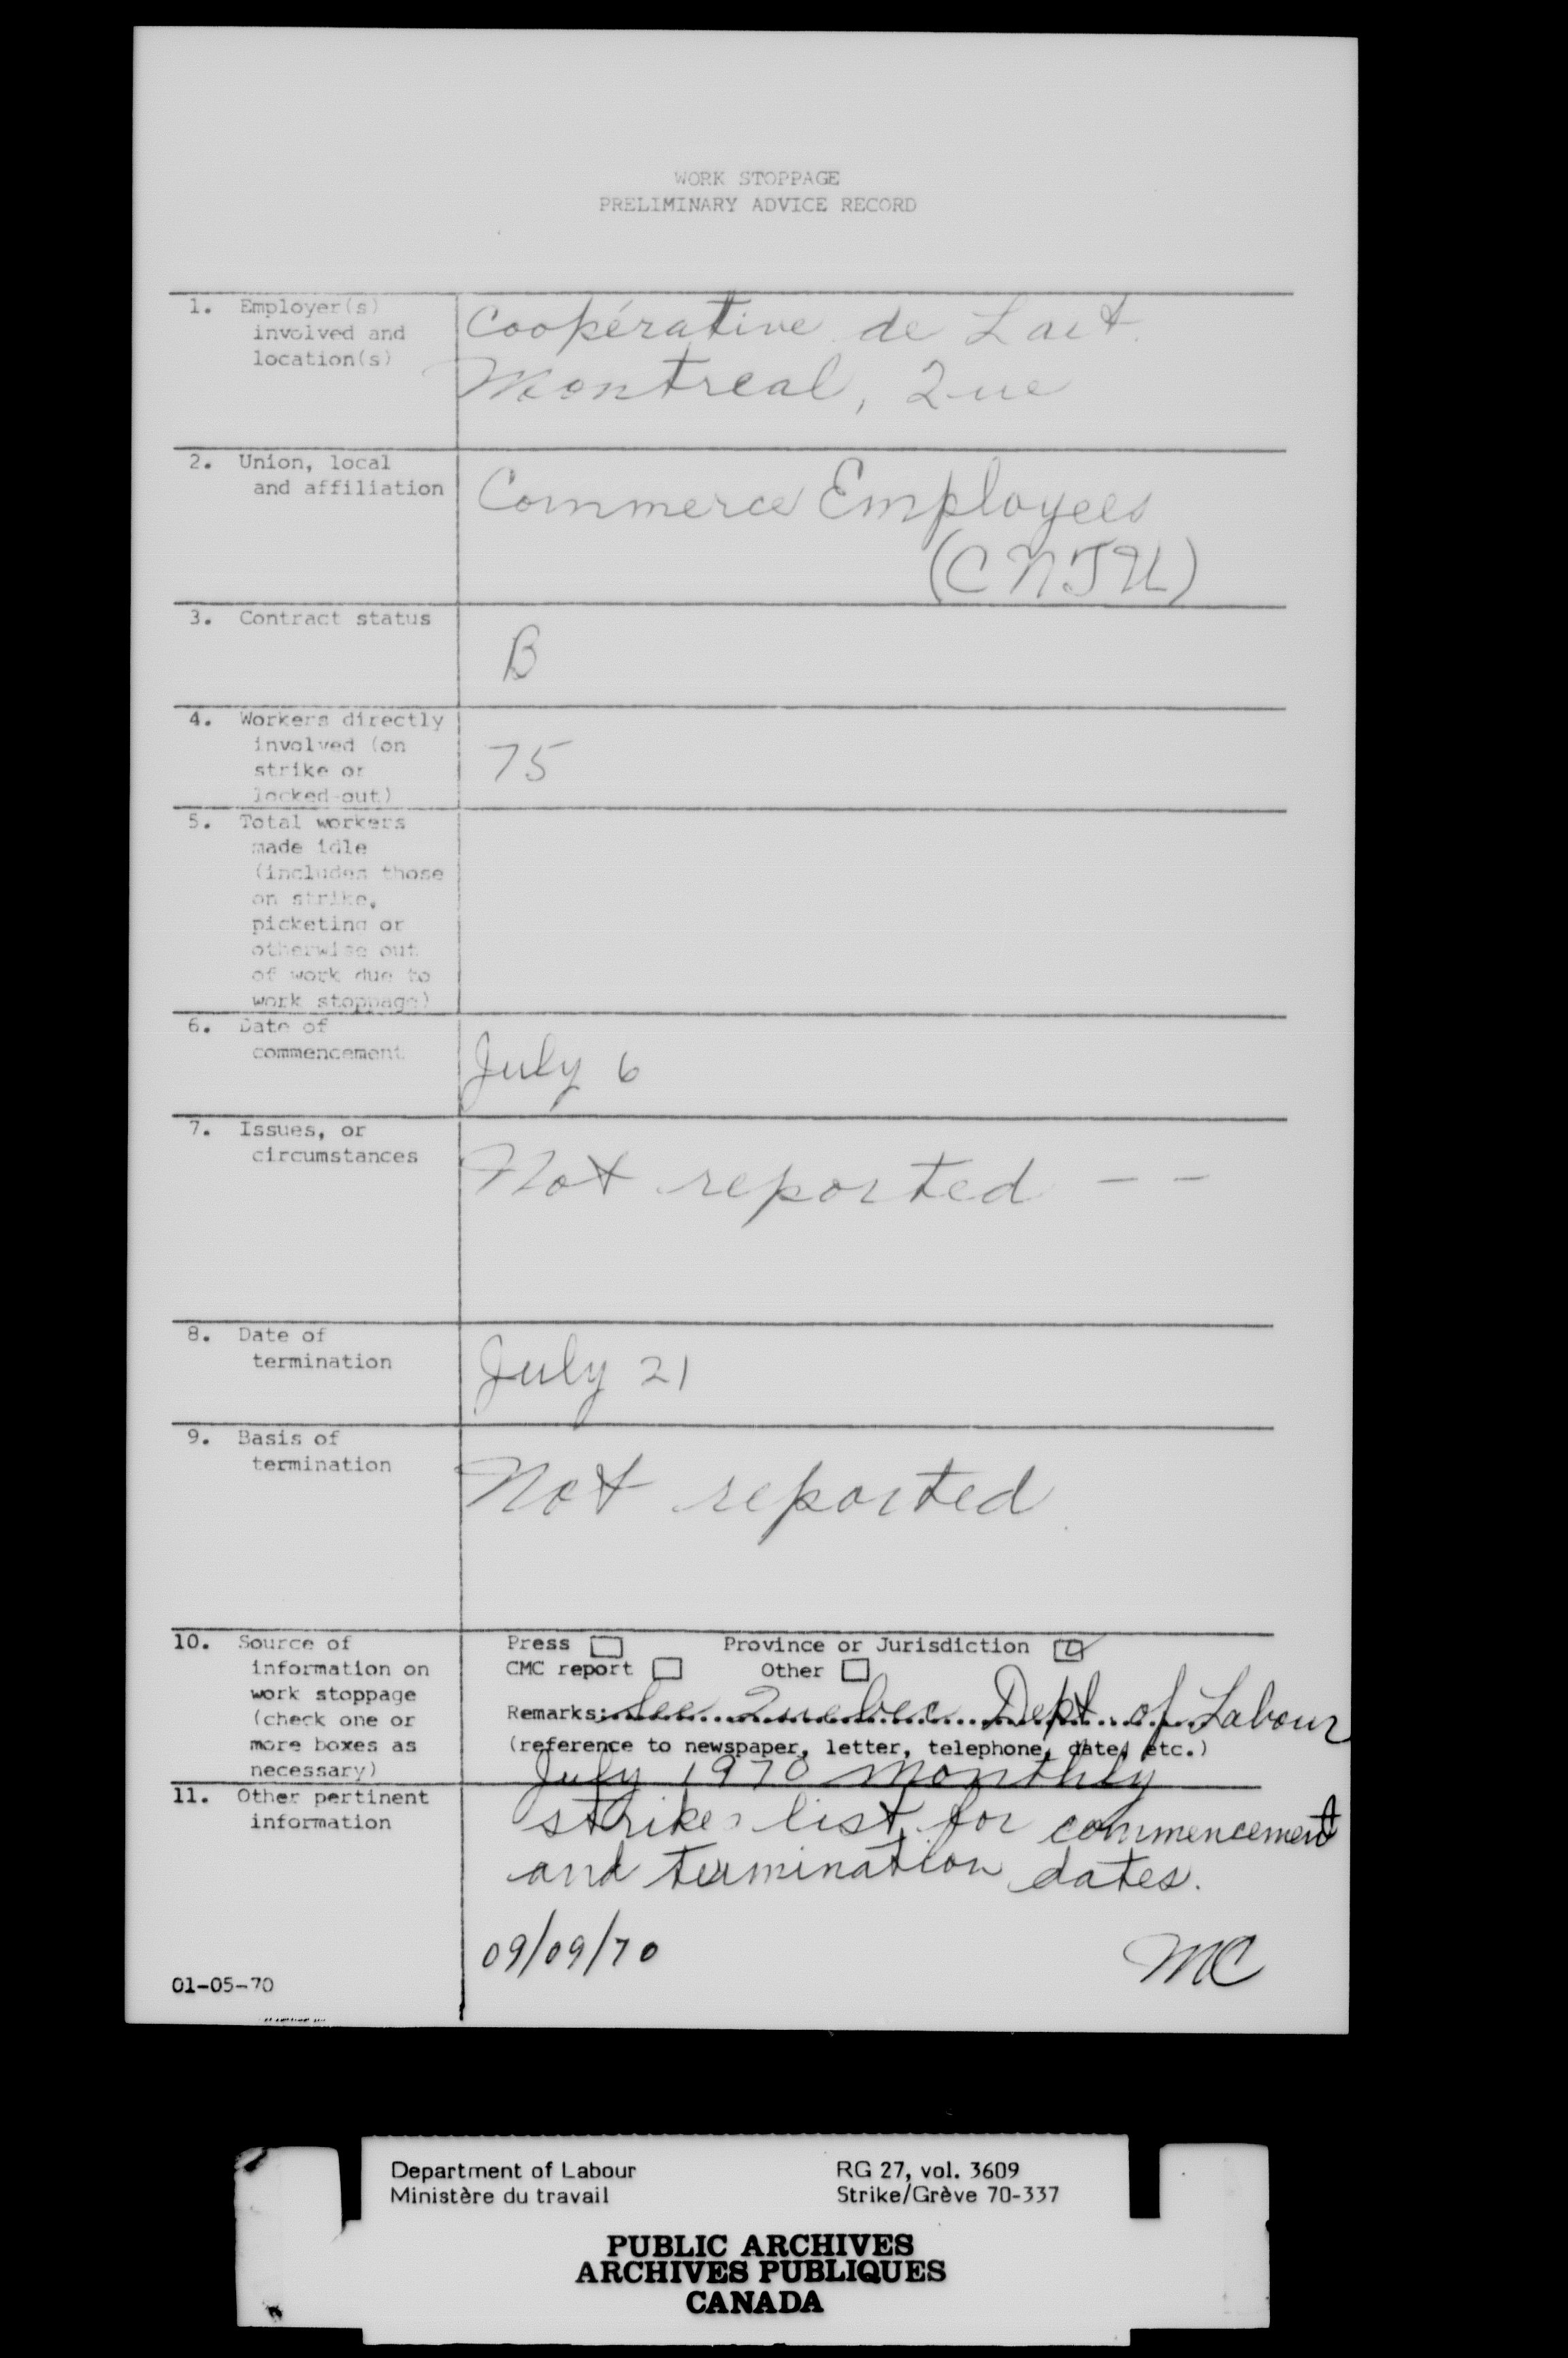 WORK STOPPAGE
PRELIMINARY ADVICE RECORD
1. Employer(s)
involved and
location(s)
Coopérative de Lait
Montreal, Que
2. Union, local
and affiliation
Commerce Employees
(CNTU)
3. Contract status
B
4. Workers directly
involved (on
strike or
locked-out)
75
5. Total workers
made idle
(includes those
on strike,
picketing or
otherwise out
of work due to
work stoppage)
6. Date of
commencement
July 6
7. Issues, or
circumstances
Not reported - -
8. Date of
termination
July 21
9. Basis of
termination
Not reported
10. Source of
information on
work stoppage
(check one or
more boxes as
necessary)
Press Province or Jurisdiction
CMC report Other
Remarks: See Quebec Dept. of Labour
(reference to newspaper, letter, telephone, date, etc.)
July 1970 monthly
11. Other pertinent
information
strikes list for commencement
and termination dates.
09/09/70 MC
01-05-70
Department of Labour
Ministère du travail
RG 27, vol. 3609
Strike/Grève 70-337
PUBLIC ARCHIVES
ARCHIVES PUBLIQUES
CANADA